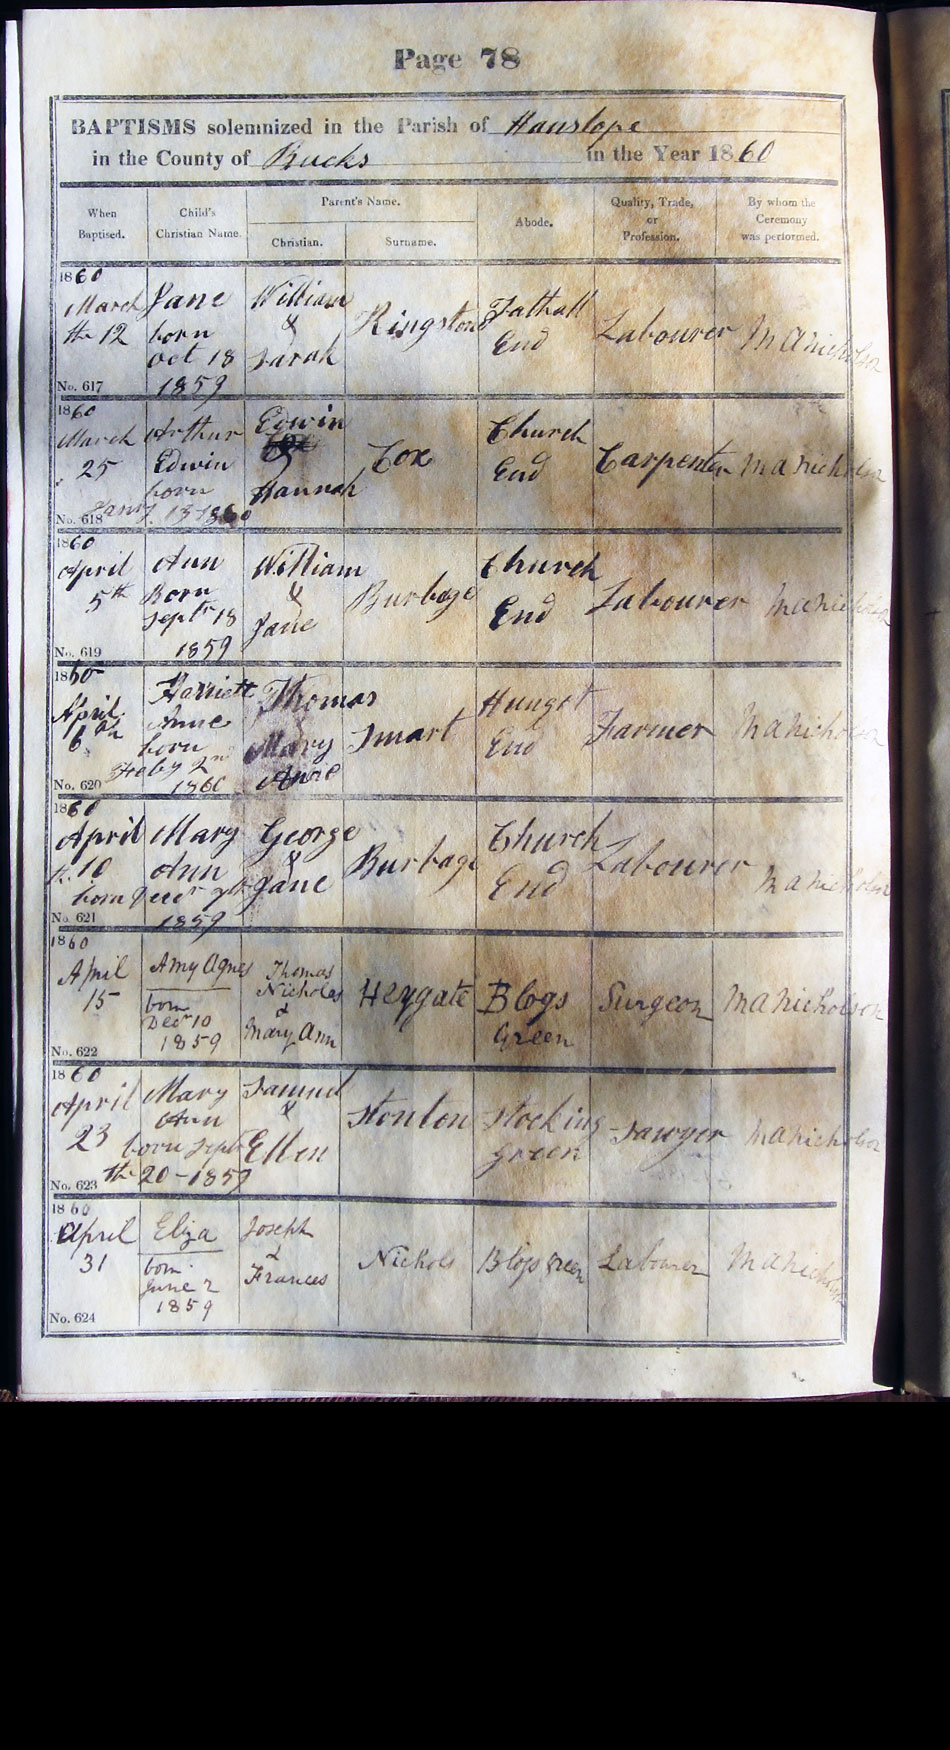 Page 78
BAPTISMS solemnized in the Parish of Hanslope
in the County of Bucks in the Year 1860
When Baptised.
Child's Christian Name.
Parent's Name.
Christian.
Surname.
Abode.
Quality, Trade, or Profession.
By whom the Ceremony was performed.
1860
March
th 12
No. 617
Jane
born
Oct 18
1859
William
&
Sarah
Kingston
Tathall
End
Labourer
M A Nicholson
1860
March
25
No. 618
Arthur
Edwin
born
Jany. 13 1860
Edwin
&
Hannah
Cox
Church
End
Carpenter
M A Nicholson
1860
April
5th
No. 619
Ann
Born
Septr 18
1859
William
&
Jane
Burbage
Church
End
Labourer
M A Nicholson
1860
April
6th
No. 620
Harriett
Anne
born
Feby 2nd
1860
Thomas
Mary
Anne
Smart
Hungt
End
Farmer
M A Nicholson
1860
April
th 10
No. 621
Mary
Ann
born Decr 7th
1859
George
&
Jane
Burbage
Church
End
Labourer
M A Nicholson
1860
April
15
No. 622
Amy Agnes
born
Decr 10
1859
Thomas
Nicholas
&
Mary Ann
Heygate
Blogs
Green
Surgeon
M A Nicholson
1860
April
23
No. 623
Mary
Ann
born Sept
th 20-1859
Samuel
&
Ellen
Stonton
Stocking
green
Sawyer
M A Nicholson
1860
April
31
No. 624
Eliza
born
June 2
1859
Joseph
&
Frances
Nichols
Blogs Green
Labourer
M A Nicholson